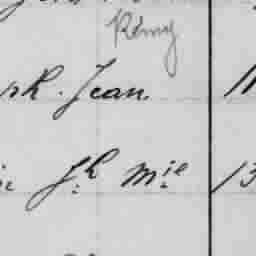 Rémy
rk. Jean
Jh Mie 13